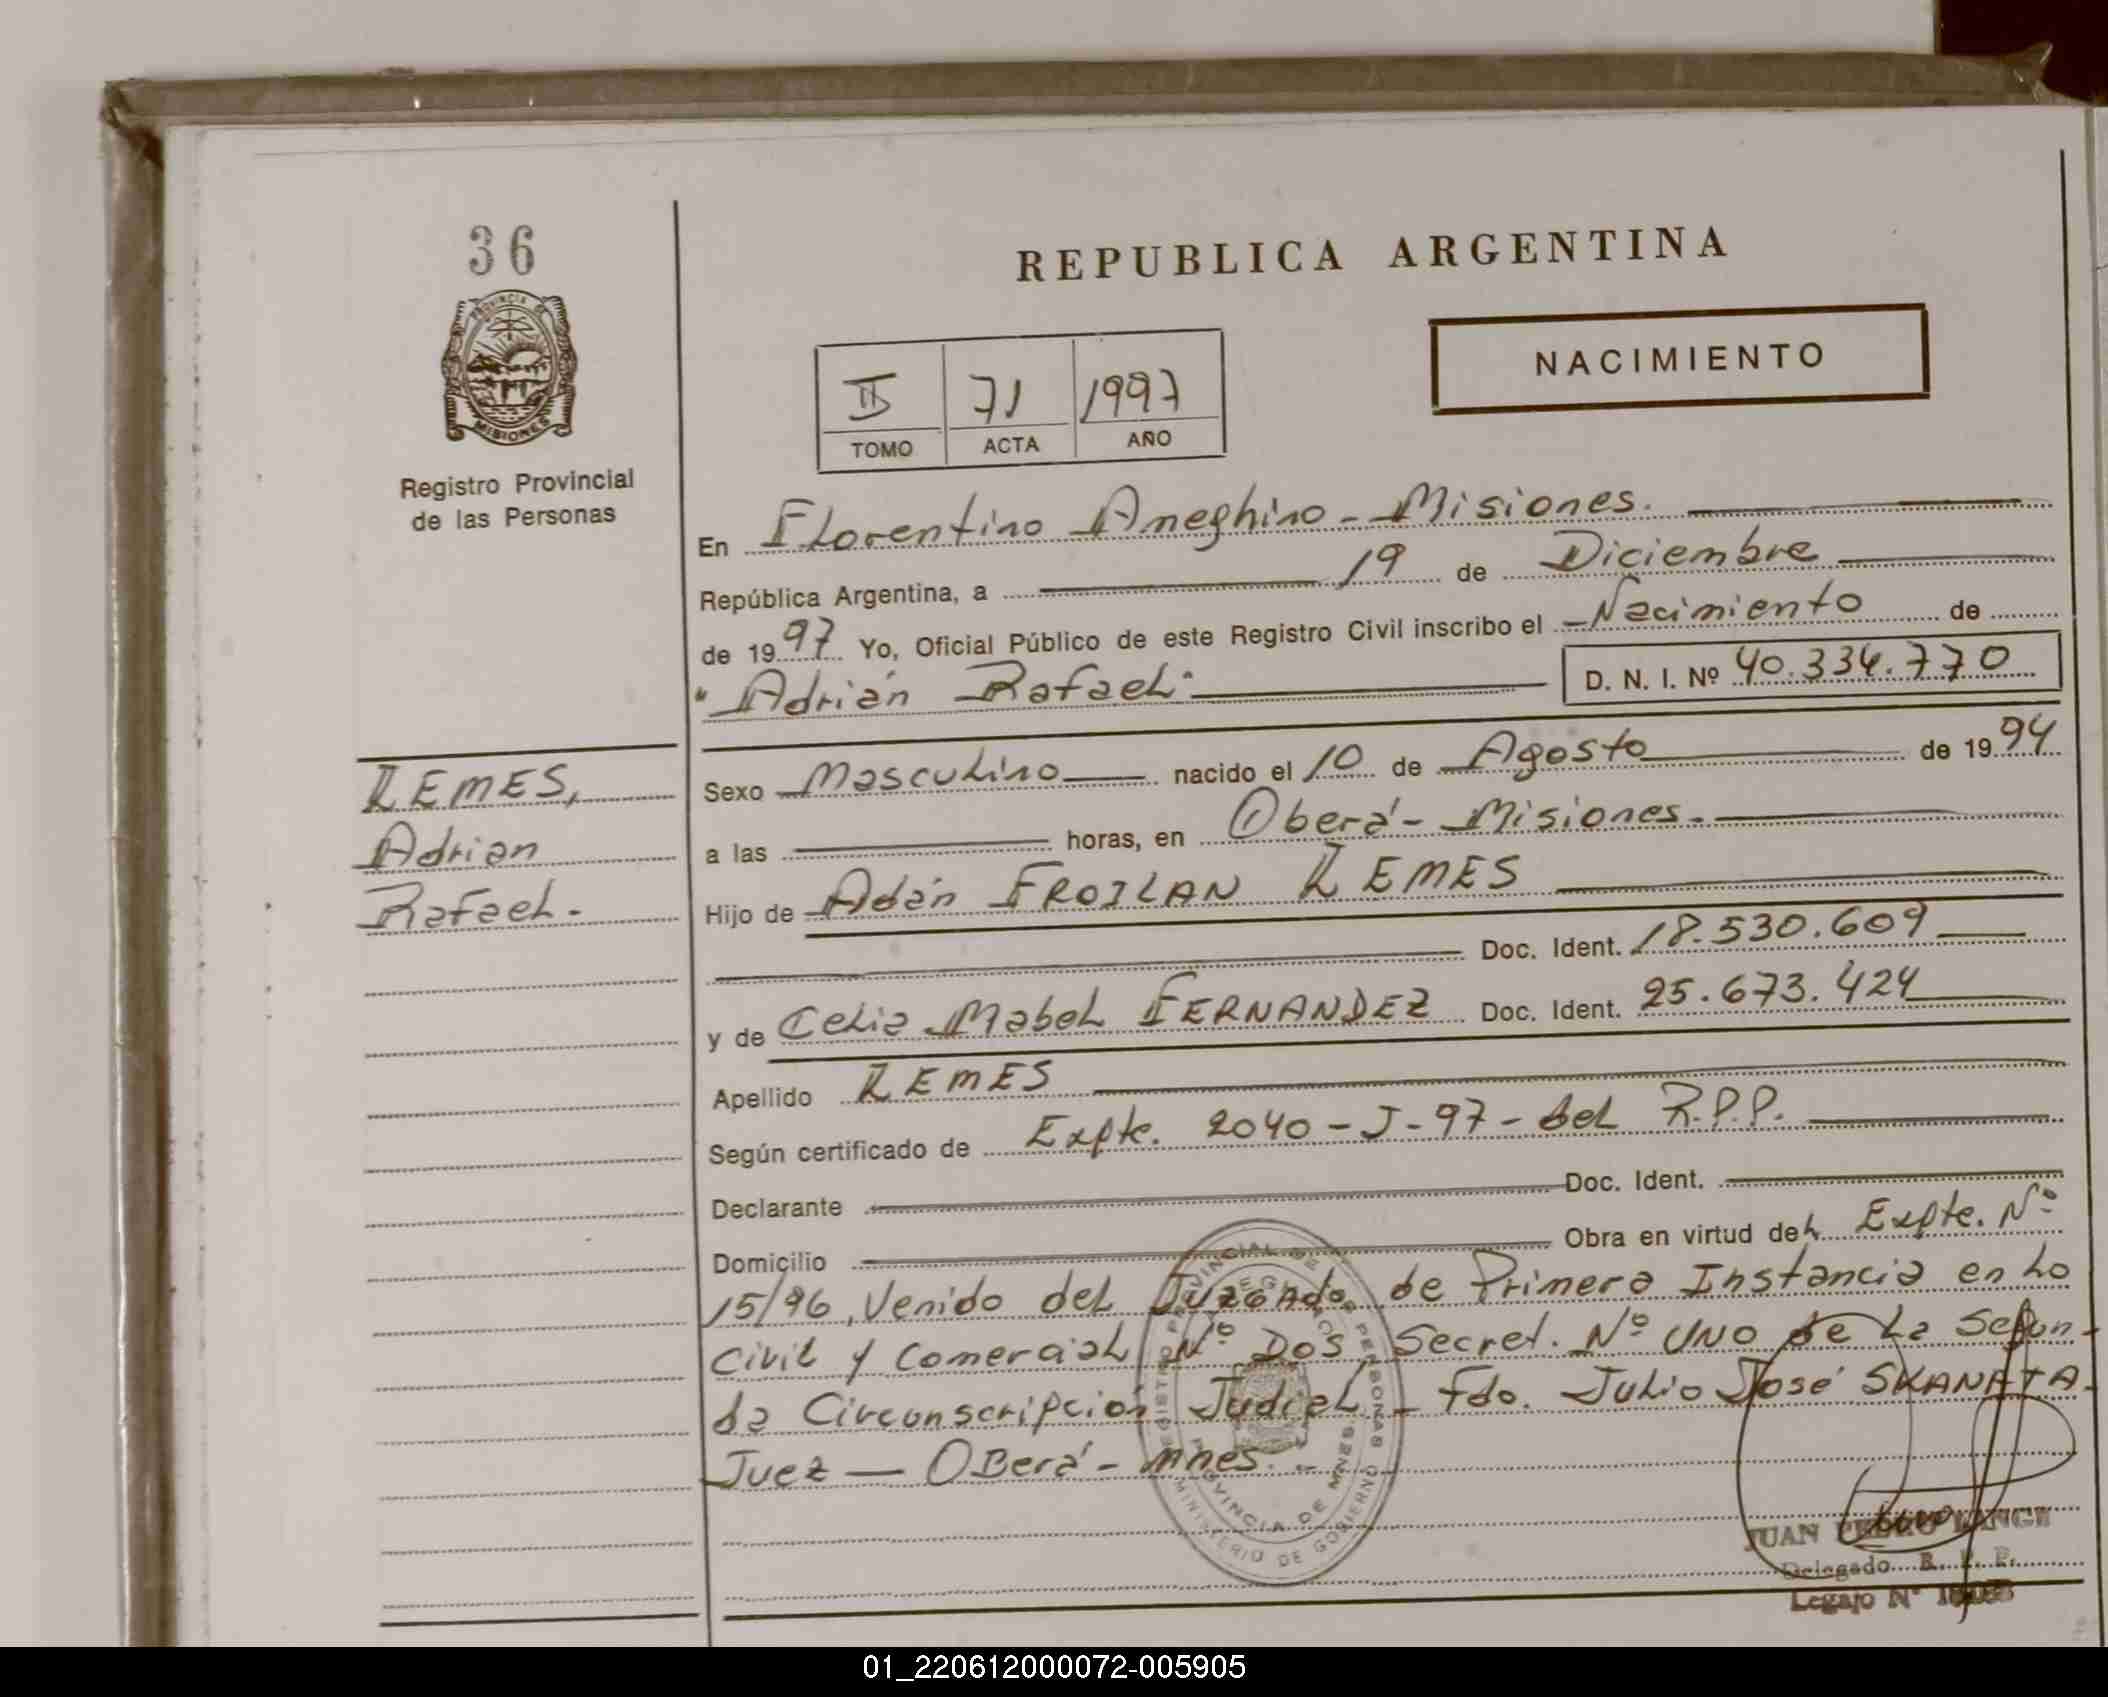 36
PROVINCIA DE
MISIONES
Registro Provincial
de las Personas
REPUBLICA ARGENTINA
NACIMIENTO
II 71 1997
TOMO ACTA AÑO
En Florentino Ameghino - Misiones.
República Argentina, a 19 de Diciembre
de 1997 Yo, Oficial Público de este Registro Civil inscribo el Nacimiento de
"Adrián Rafael" D. N. I. Nº 40.334.770
LEMES,
Adrian
Rafael.-
Sexo Masculino nacido el 10 de Agosto de 1994
a las horas, en Oberá - Misiones.
Hijo de Adán FROILAN LEMES
Doc. Ident. 18.530.609
y de Celia Mabel FERNANDEZ Doc. Ident. 25.673.424
Apellido LEMES
Según certificado de Expte. 2040-J-97- del R.P.P.
Declarante Doc. Ident.
Domicilio Obra en virtud del Expte. Nº
15/96, Venido del Juzgado de Primera Instancia en Lo
Civil y Comercial Nº DOS Secret. Nº UNO de La Segun-
da Circunscripción Judicial - Fdo. Julio José SKANATA-
Juez — OBerá - mnes.-
REGISTRO PROVINCIAL DE LAS PERSONAS
MINISTERIO DE GOBIERNO
PROVINCIA DE MNES.
JUAN
Delegado R. P. P.
Legajo Nº
01_220612000072-005905